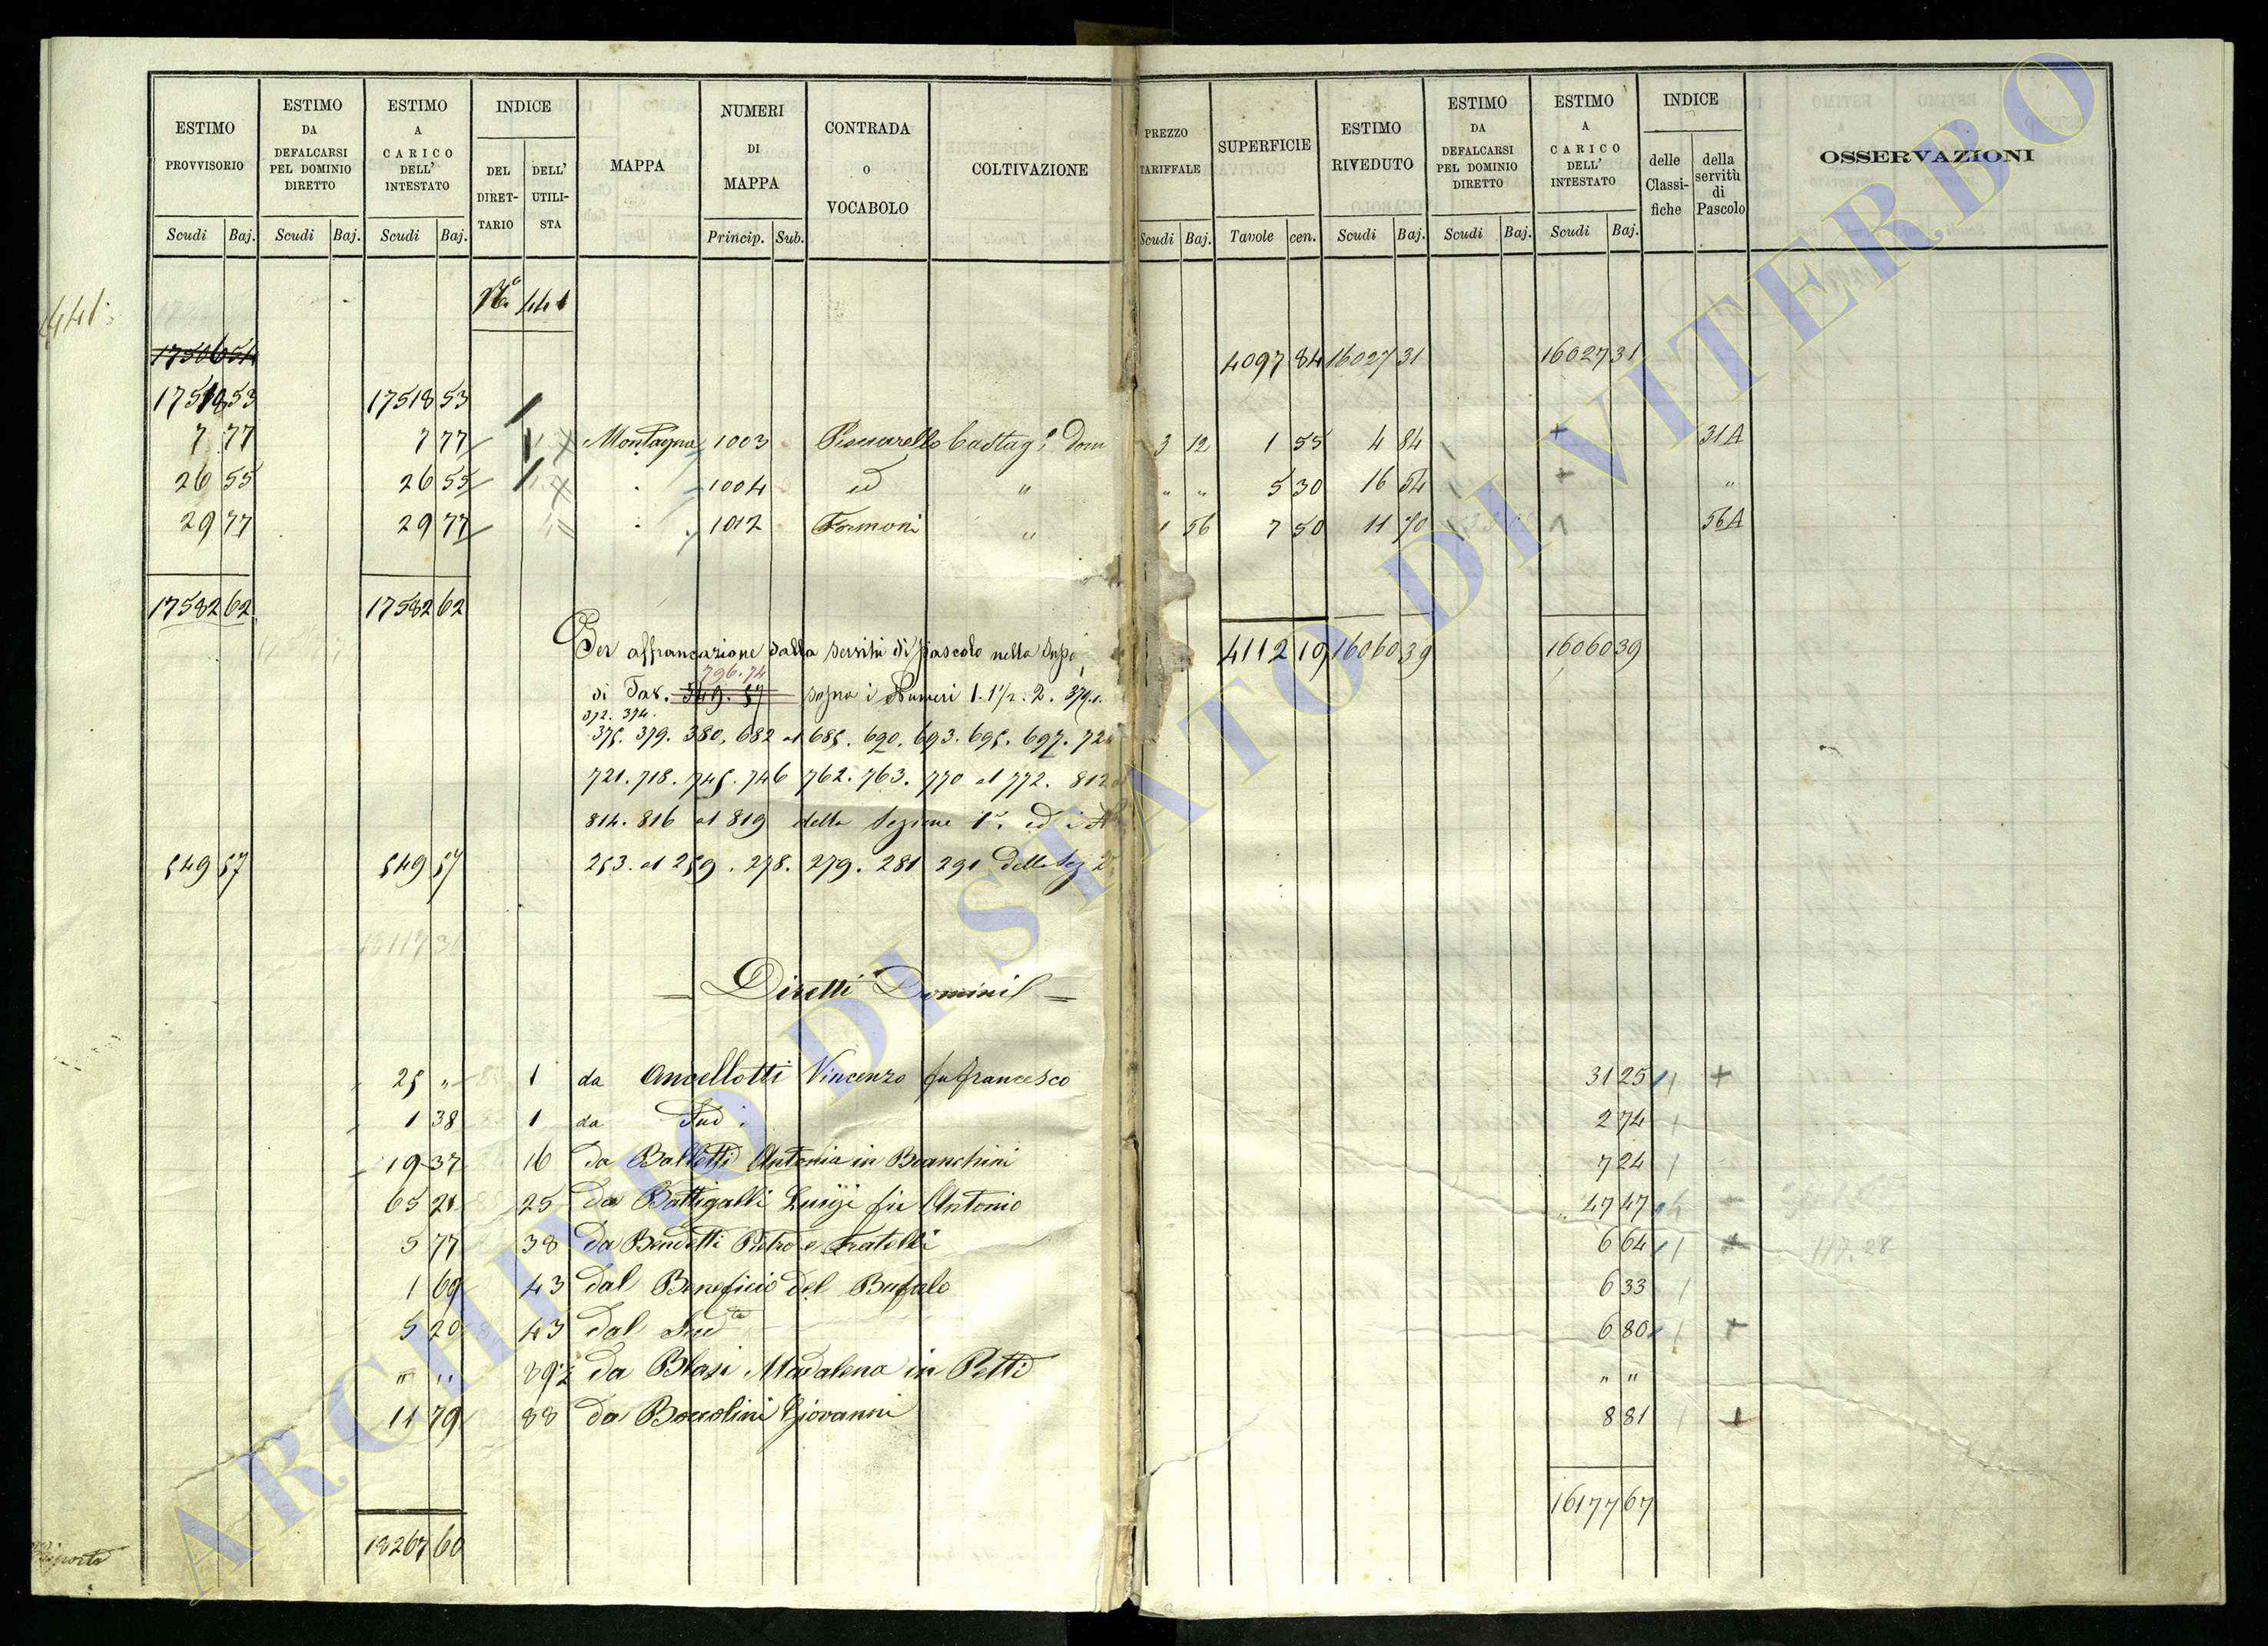 ESTIMO PROVVISORIO Scudi Baj.
ESTIMO DA DEFALCARSI PEL DOMINIO DIRETTO Scudi Baj.
ESTIMO A CARICO DELL' INTESTATO Scudi Baj.
INDICE DEL DIRETTARIO DELL' UTILISTA
MAPPA
NUMERI DI MAPPA Princip. Sub.
CONTRADA O VOCABOLO
COLTIVAZIONE
PREZZO TARIFFALE Scudi Baj.
SUPERFICIE Tavole cen.
ESTIMO RIVEDUTO Scudi Baj.
ESTIMO DA DEFALCARSI PEL DOMINIO DIRETTO Scudi Baj.
ESTIMO A CARICO DELL' INTESTATO Scudi Baj.
INDICE delle Classifiche della servitù di Pascolo
OSSERVAZIONI
441
441
17506 54 4097 84 16027 31 16027 31
17518 53 17518 53
7 77 7 77 Montagna 1003 Castag. dom 3 12 1 55 4 84 + 31A
26 55 26 55 1004 id " " " 5 30 16 54 + "
29 77 29 77 1012 Formoni " 1 56 7 50 11 70 56A
17582 62 17582 62
Per affrancazione dalla servitù di pascolo nella Supe 4112 19 16060 39 16060 39
796.74
di Tav. 549.57 sopra i Numeri 1. 1/2. 2. 371.
372. 374.
375. 379. 380, 682 al 685. 690. 693. 695. 697. 720
721. 718. 745. 746 762. 763. 770 al 772. 812
814. 816 al 819 della Sezione 1a. ed i
549 57 549 57 253. al 259. 278. 279. 281 291 della Sez 2
18117 31
= Diretti Dominii =
25 " 1 da Ancellotti Vincenzo fu Francesco 31 25 +
1 38 1 da Sud. 2 74
19 37 16 da Balletti Antonia in Bianchini 7 24
65 21 25 da Battigalli Luigi fu Antonio 47 47
5 77 38 da Bendetti Pietro e Fratelli 6 64 + 117.28
1 69 43 dal Beneficio Del Bufalo 6 33
5 20 43 dal Sudto 6 80 +
" " 39 1/2 da Blasi Madalena in Petti " "
11 79 88 da Boccolini Giovanni 8 81 +
16177 67
18267 60
Riporto
ARCHIVIO DI STATO DI VITERBO